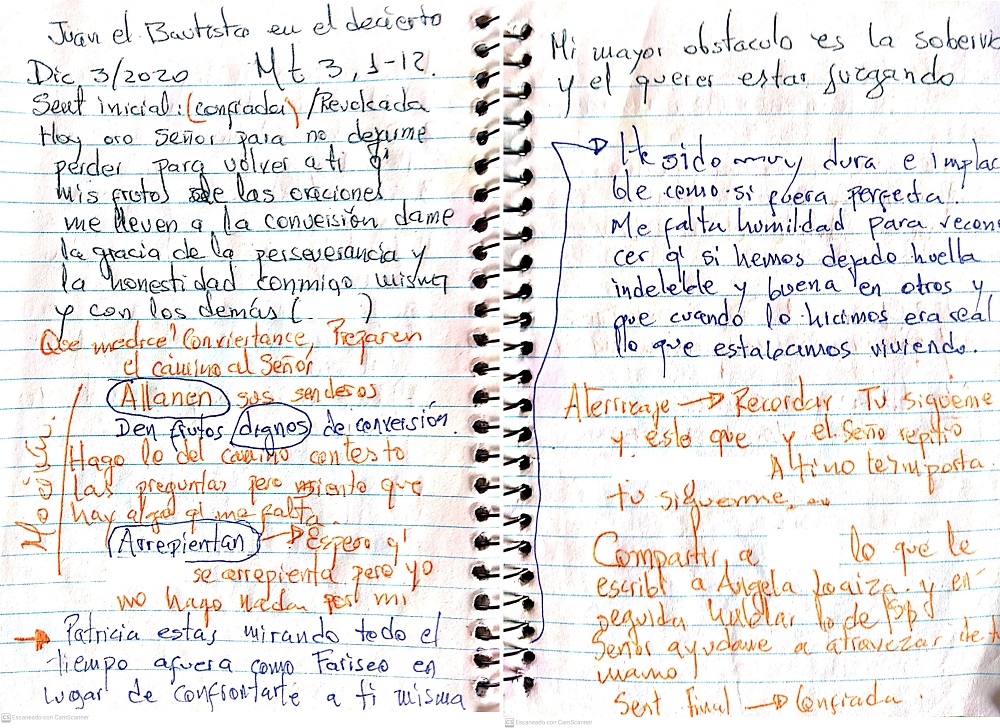 Juan el Bautista en el decierto
Dic 3/2020 Mt 3, 1-12.
Sent inicial: (confiada) /Revolcada
Hoy oro Señor para no dejarme
perder para volver a ti q'
mis frutos de las oraciones
me lleven a la conversión dame
la gracia de la perseverancia y
la honestidad conmigo misma
y con los demás ( )
Que me dice? Conviertance, Preparen
el camino al Señor
Allanen sus senderos
Den frutos dignos de conversión.
Hago lo del camino contesto
las preguntas pero siento que
hay algo q' me falta.
Arrepientan → Espero q'
se arrepienta pero yo
no hago nada por mi
→ Patricia estás mirando todo el
tiempo afuera como Fariseo en
lugar de confrontarte a ti misma
Moción:
Mi mayor obstaculo es la soberv
y el querer estar juzgando
He sido muy dura e implac
ble como si fuera perfecta.
Me falta humildad para recon
cer q' si hemos dejado huella
indeleble y buena en otros y
que cuando lo hicimos era real
lo que estabamos viviendo.
Aterrizaje → Recordar Tu sigueme
y este que y el Seño repitio
A ti no te importa.
tu sigueme...
Compartir a lo que le
escribi a Angela Loaiza y en-
seguida hablar lo de
Señor ayudame a atravezar de t
mano
Sent final → Confiada.
CS Escaneado con CamScanner
CS Escaneado con CamScanner